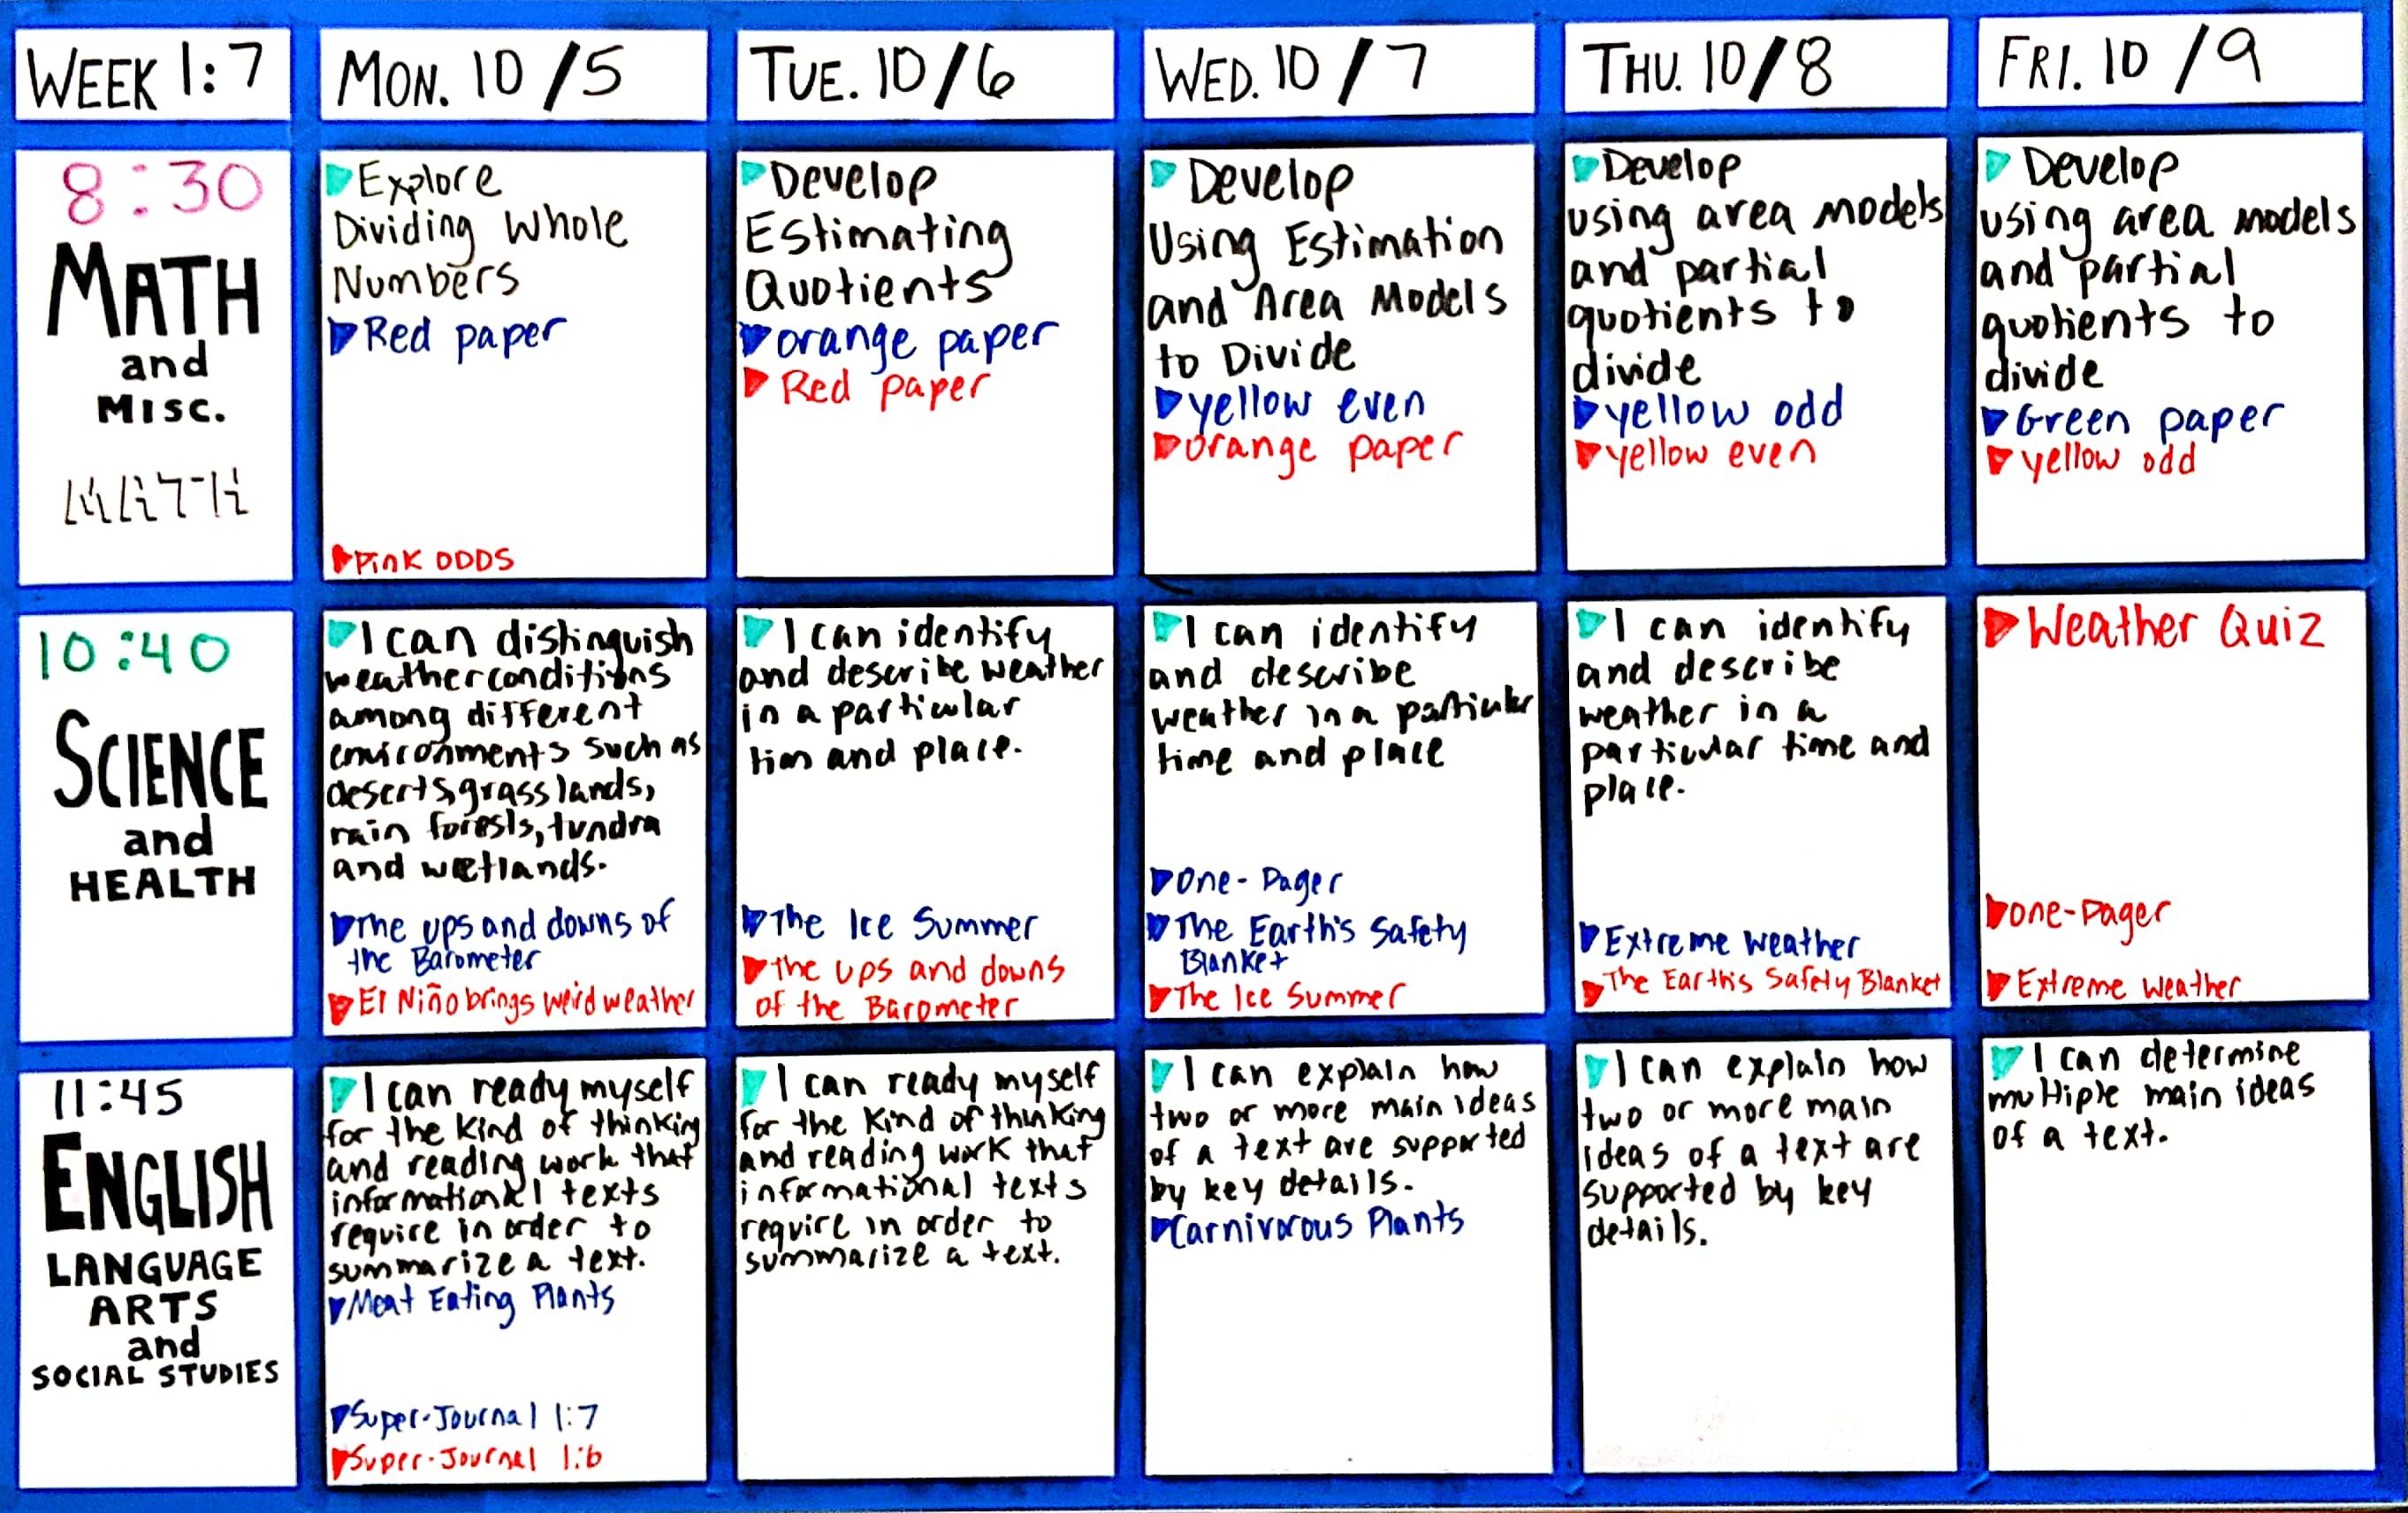 WEEK 1:7
MON. 10/5
TUE. 10/6
WED. 10/7
THU. 10/8
FRI. 10/9
8:30
MATH
and
MISC.
MATH
Explore
Dividing Whole
Numbers
Red paper
Pink ODDS
Develop
Estimating
Quotients
orange paper
Red paper
Develop
Using Estimation
and Area Models
to Divide
yellow even
orange paper
Develop
using area models
and partial
quotients to
divide
yellow odd
yellow even
Develop
using area models
and partial
quotients to
divide
Green paper
yellow odd
10:40
SCIENCE
and
HEALTH
I can distinguish
weather conditions
among different
environments such as
deserts, grasslands,
rain forests, tundra
and wetlands.
The ups and downs of
the Barometer
El Niño brings weird weather
I can identify
and describe weather
in a particular
tim and place.
The Ice Summer
the ups and downs
of the Barometer
I can identify
and describe
weather in a particular
time and place
One-Pager
The Earth's Safety
Blanket
The Ice Summer
I can identify
and describe
weather in a
particular time and
place.
Extreme weather
The Earth's Safety Blanket
Weather Quiz
one-pager
Extreme weather
11:45
ENGLISH
LANGUAGE
ARTS
and
SOCIAL STUDIES
I can ready myself
for the kind of thinking
and reading work that
informational texts
require in order to
summarize a text.
Meat Eating Plants
Super-Journal 1:7
Super-Journal 1:6
I can ready myself
for the kind of thinking
and reading work that
informational texts
require in order to
summarize a text.
I can explain how
two or more main ideas
of a text are supported
by key details.
Carnivorous Plants
I can explain how
two or more main
ideas of a text are
supported by key
details.
I can determine
multiple main ideas
of a text.